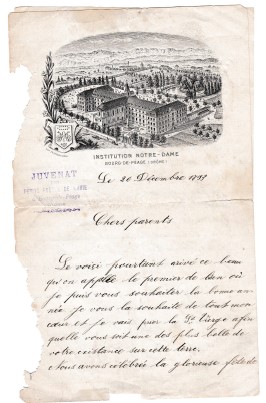 INSTITUTION NOTRE-DAME
BOURG-DE-PÉAGE (DRÔME)
JUVENAT
Le 20 Décembre 1898
Chers parents
Le voici pourtant arivé ce beau
qu'on appelle le premier de l'en où
je puis vous souhaiter la bonne an-
née je vous la souhaite de tout mon
cœur et je vais prier la Ste Vierge afin
quelle vous soit une des plus belle de
votre existance sur cette terre.
Nous avons célébrée la glorieuse fête de